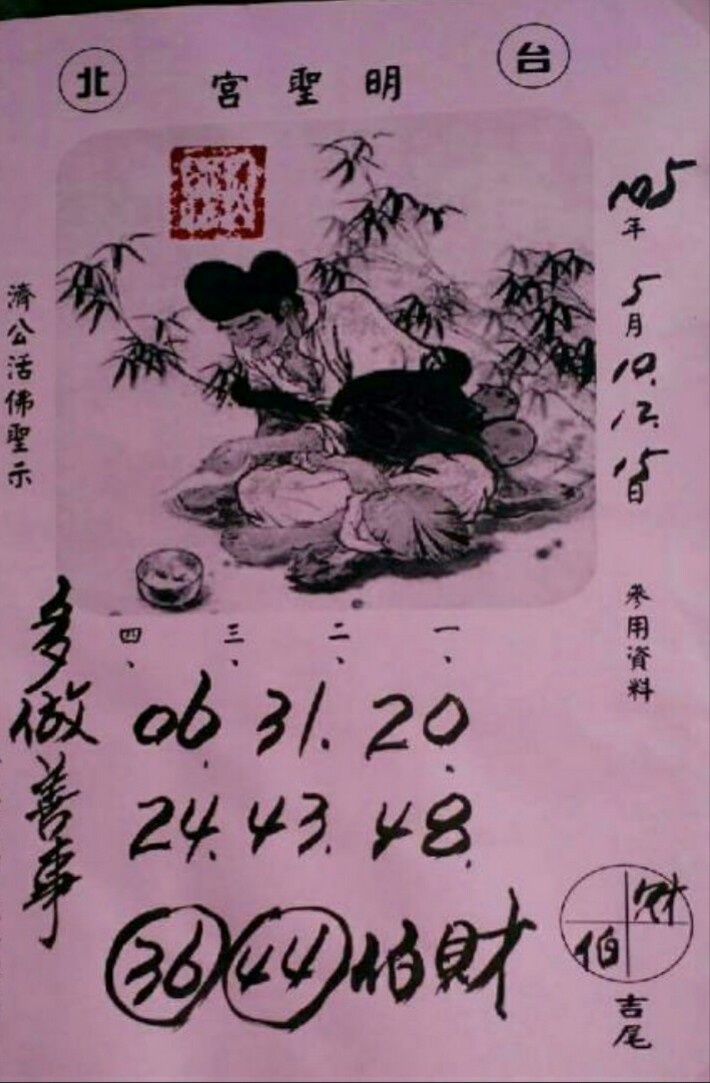 台北
明聖宮
105年5月10.12.15日
參用資料
濟公活佛聖示
一、二、三、四、
20.31.06.
48.43.24.
36 44 伯財
多做善事
財
伯
吉尾